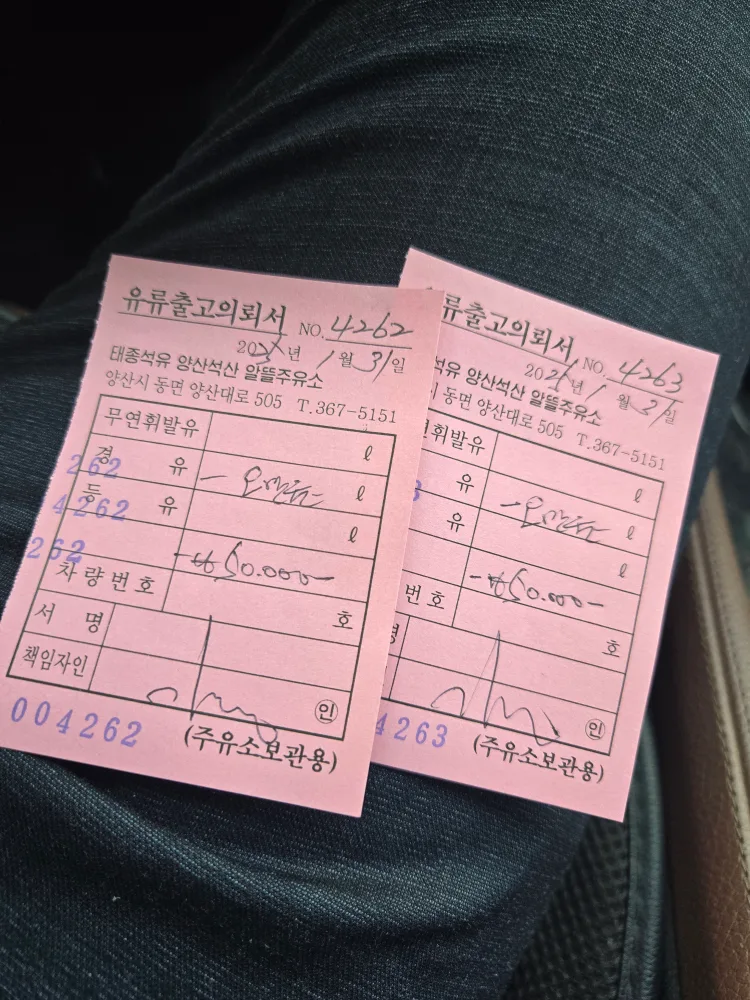 유류출고의뢰서 NO. 4262
20 년 1월 31일
태종석유 양산석산 알뜰주유소
양산시 동면 양산대로 505 T.367-5151
무연휘발유 ℓ
경 유 오만원 ℓ
등 유 ℓ
-₩50.000-
차량번호 호
서 명
책임자인 인
262
4262
262
004262 (주유소보관용)
류출고의뢰서 NO. 4263
20 년 1월 31일
석유 양산석산 알뜰주유소
동면 양산대로 505 T.367-5151
휘발유 ℓ
유 -오만원 ℓ
유 ℓ
-₩50.000-
번호 호
명
인
3
4263 (주유소보관용)